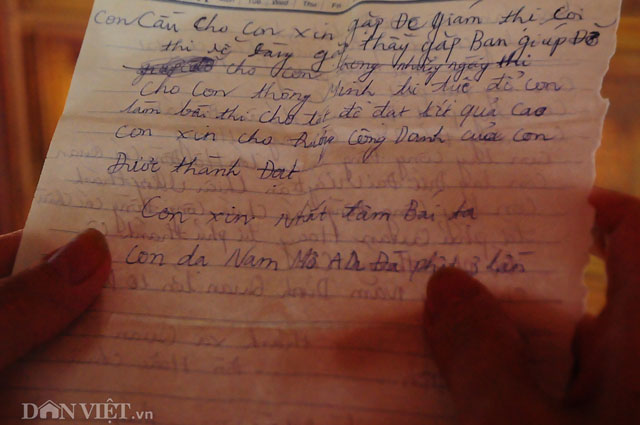 Tue Wed Thu Fri
Con Cầu cho con xin gặp Đc giám thi Coi
thi rẽ gặp thầy gặp Ban giúp Đỡ
cho con trong những ngày thi
cho con thông Minh trí tuệ để con
làm bài thi cho tốt để đạt kết quả cao
con xin cho Đường Công Danh của con
Được thành Đạt
Con xin nhất tâm Bái tạ
Con da Nam Mô A Di Đà phật 3 lần
DÂN VIỆT.vn